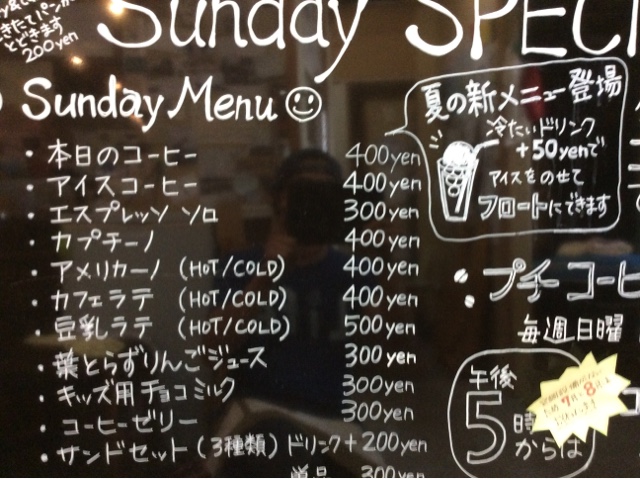 きたてパンが
とどきます
200yen
Sunday SPECI
Sunday Menu
・本日のコーヒー 400yen
・アイスコーヒー 400yen
・エスプレッソ ソロ 300yen
・カプチーノ 400yen
・アメリカーノ (HOT/COLD) 400yen
・カフェラテ (HOT/COLD) 400yen
・豆乳ラテ (HOT/COLD) 500yen
・葉とらずりんごジュース 300yen
・キッズ用チョコミルク 300yen
・コーヒーゼリー 300yen
・サンドセット(3種類)ドリンク+200yen
単品 300yen
夏の新メニュー登場
冷たいドリンク
+50yenで
アイスをのせて
フロートにできます
プチコーヒ
毎週日曜
午後
5時
からは
7/1